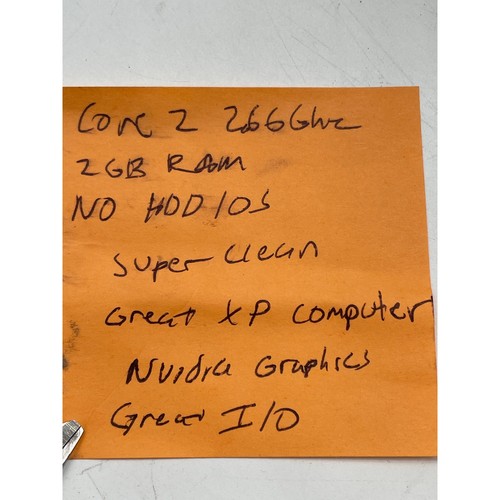 Core 2 266Ghz
2GB RAM
NO HDD/OS
Super Clean
Great XP Computer
Nvidia Graphics
Great I/O